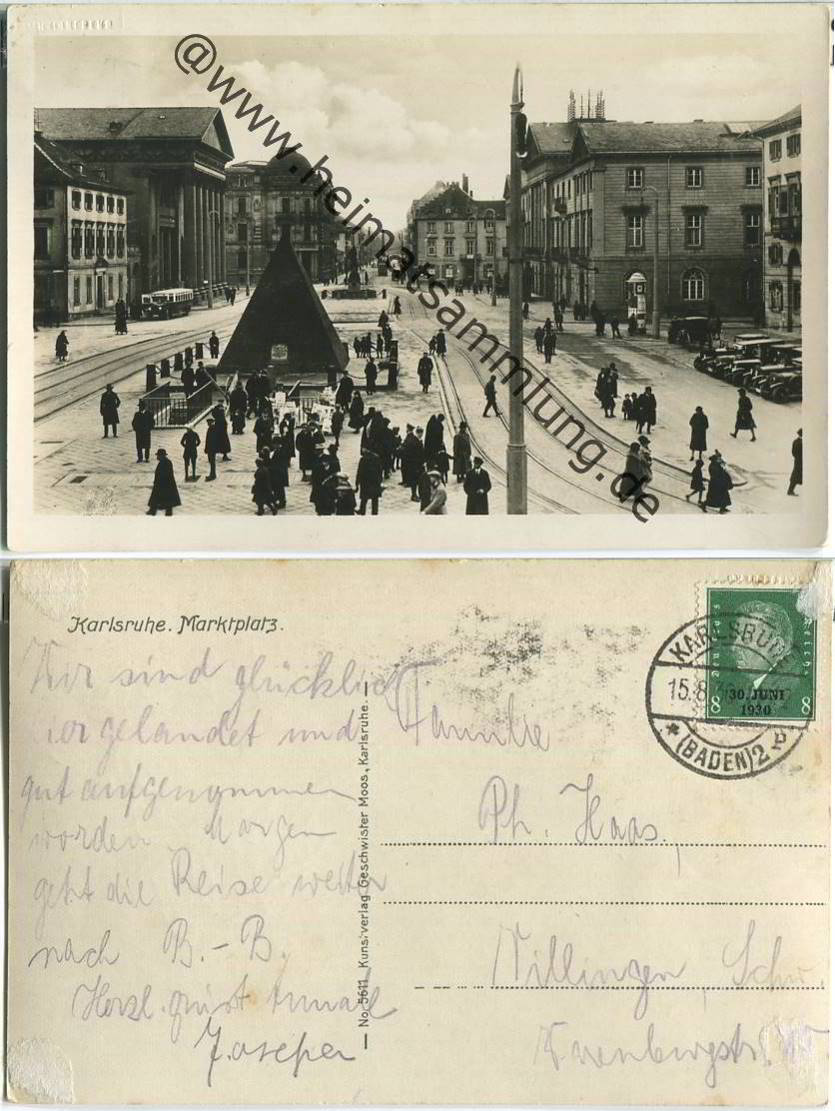 @www.heimatsammlung.de
Karlsruhe. Marktplatz.
Wir sind glücklich
hier gelandet und
gut aufgenommen
worden. Morgen
geht die Reise weiter
nach B.-B.
Herzl. grüßt
No. 5611 Kunstverlag Geschwister Moos, Karlsruhe.
KARLSRUHE
15.8.
(BADEN) 2
Deutsches Reich
30. JUNI
1930
8 8
Familie
Ph. Haas.
Villingen, Schw.